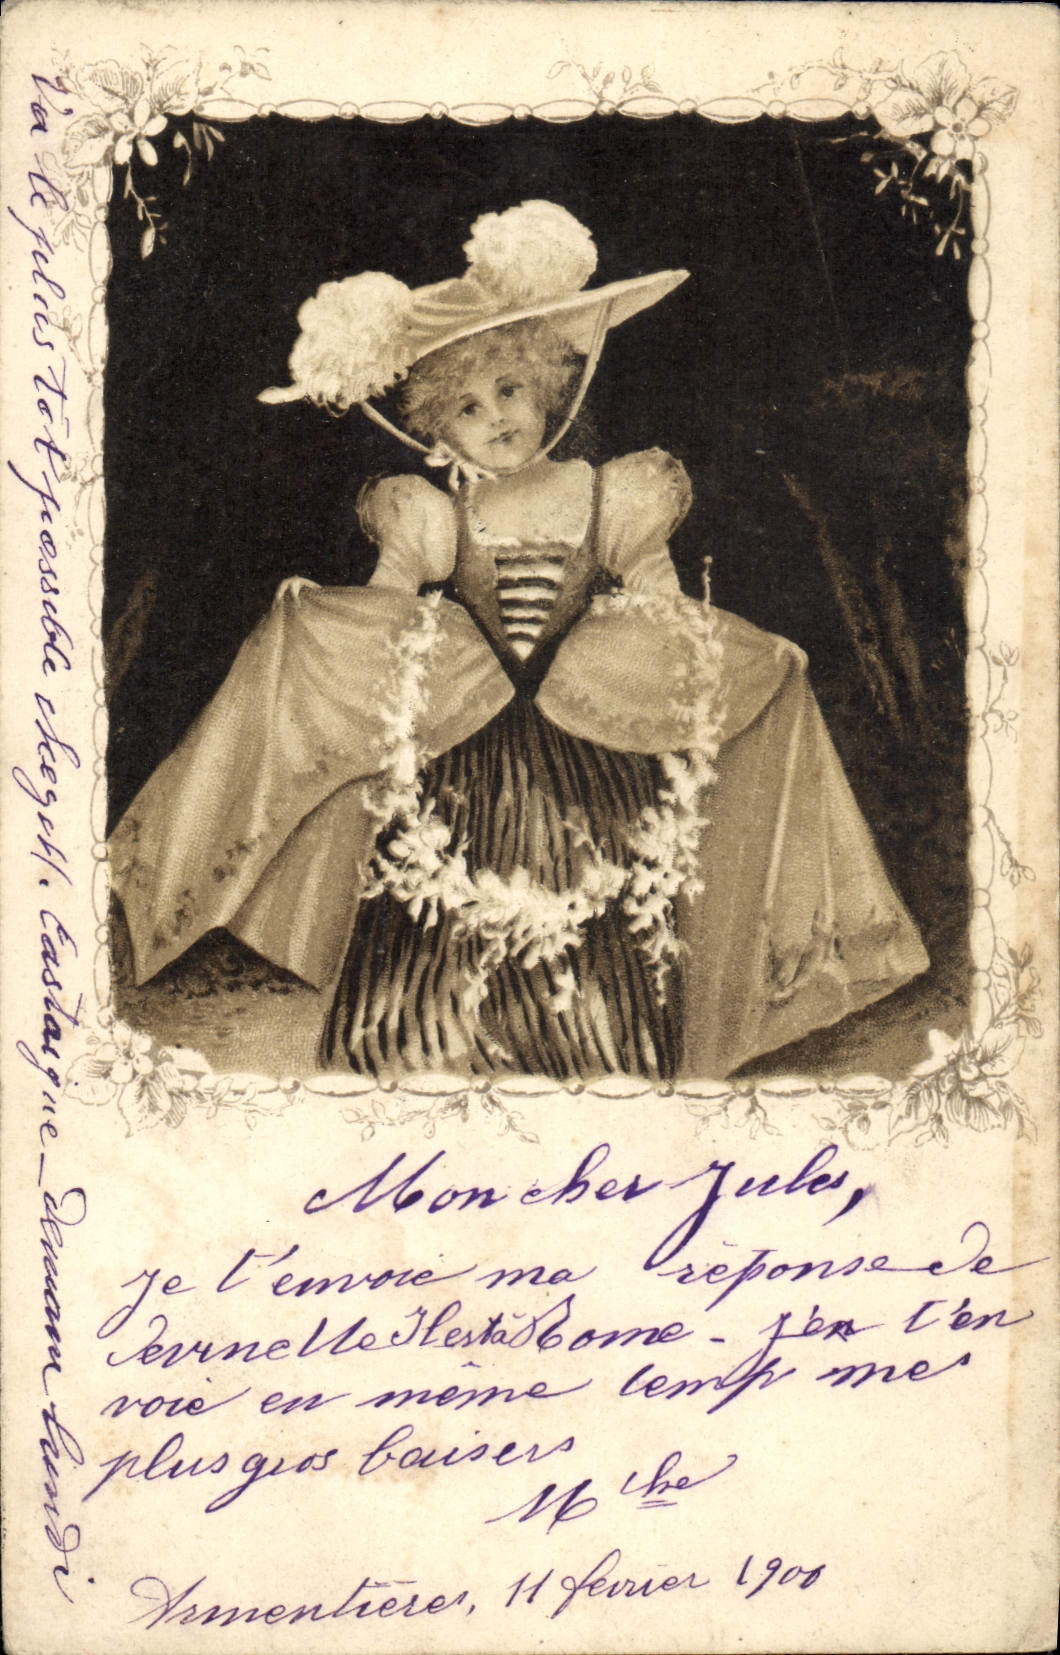 Mon cher Jules,
je t'envoie ma réponse de
Il est à Rome - j'en t'en
voie en même temp mes
plus gros baisers
M che
Armentières, 11 février 1900
Va le plus tôt possible chez Castaigne _ demain lundi